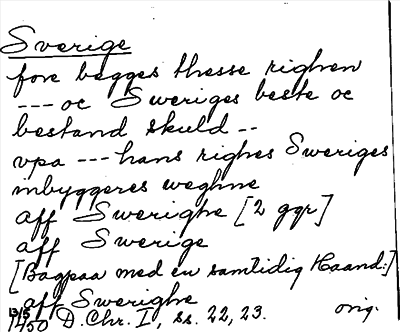 Sverige
fore begges thesse righen
--- oc Sweriges beste oc
bestand skuld --
vpa --- hans righes Sweriges
inbyggeres weghne
aff Swerighe [2 ggr]
aff Swerige
[Bagpaa med en samtidig Haand:]
aff Swerighe
13/5 1450 D. Chr. I, ss. 22, 23. orig.